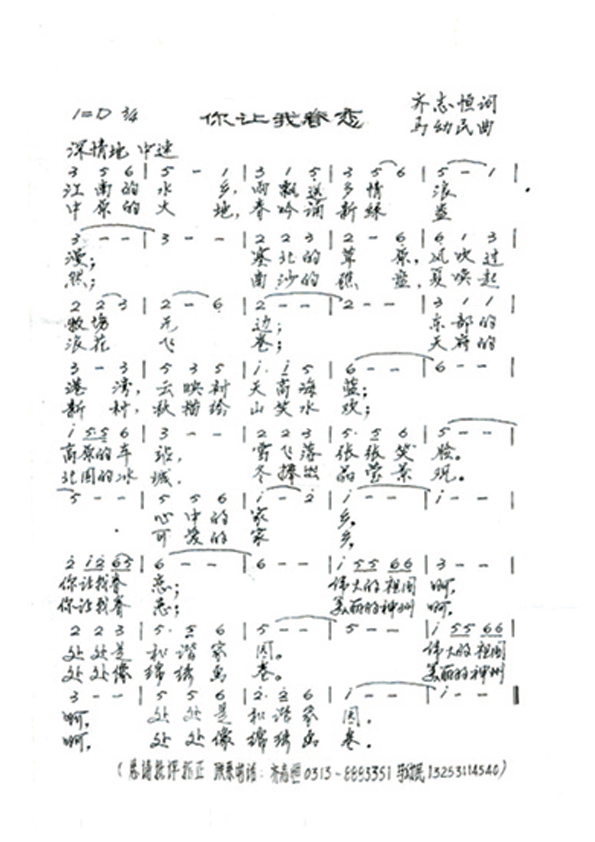 你让我眷恋
1=D 3/4
齐志恒词
马幼民曲
深情地 中速
3 5 6 | 5 - 1 | 3 1 5 | 3 5 6 | 5 - 1 |
江南的水乡,雨飘送乡情浪
中原的大地,春吟诵新绿盎
3 - - | 3 - - | 2 2 3 | 2 - 6 | 6 1 3 |
漫; 塞北的草原,风吹过
然; 南沙的礁盘,夏唤起
2 2 3 | 2 - 6 | 2 - - | 2 - - | 3 1 1 |
牧场无边; 东部的
浪花飞卷; 天府的
3 - 3 | 5 3 5 | i· i 5 | 6 - - | 6 - - |
港湾,云映衬天高海蓝;
新村,秋描绘山笑水欢;
i 5 5 6 | 3 - - | 2 2 3 | 5· 5 6 | 5 - - |
高原的车站,雪飞落张张笑脸。
北国的冰城,冬捧出晶莹景观。
5 - - | 5 5 6 | i - 2 | i - - | i - - |
心中的家乡,
可爱的家乡,
2 i 2 6 5 | 6 - - | 6 - - | i 5 5 6 6 | 3 - - |
你让我眷恋; 伟大的祖国啊,
你让我眷恋; 美丽的神州啊,
2 2 3 | 5· 5 6 | 5 - - | 5 - - | i 5 5 6 6 |
处处是和谐家园。 伟大的祖国
处处像锦绣画卷。 美丽的神州
3 - - | 5 5 6 | 2· 2 6 | i - - | i - - |
啊,处处是和谐家园。
啊,处处像锦绣画卷。
(恳请批评指正 联系电话:齐志恒0313-8883351 马幼民13253114540)